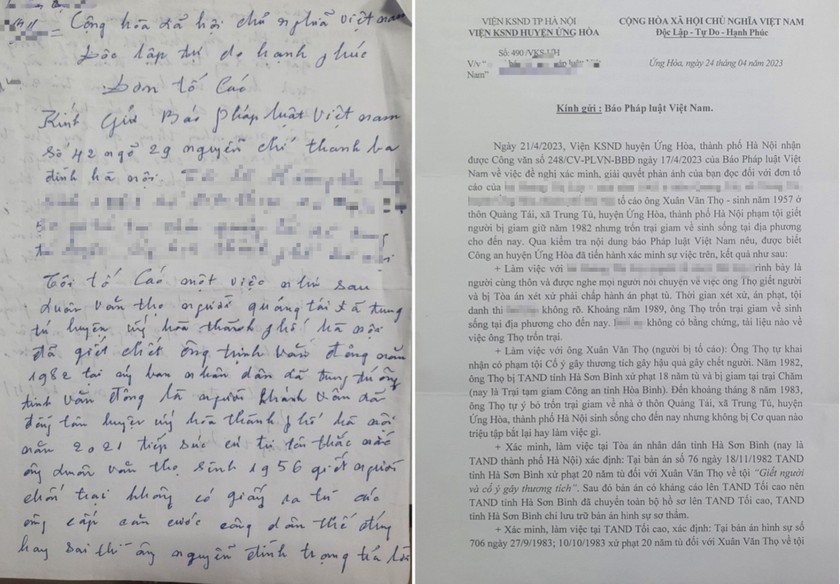 Cộng hòa xã hội chủ nghĩa việt nam
Độc lập tự do hạnh phúc
Đơn tố Cáo
Kính Gửi Báo pháp luật việt nam
Số 42 ngõ 29 nguyễn chí thanh ba
đình hà nội.
Tôi tố Cáo một việc như sau
xuân văn thọ người quảng tái xã trung
tú huyện ứng hòa thành phố hà nội
đã giết chết ông trịnh văn đông năm
1982 tại uỷ ban nhân dân xã trung tú ông
trịnh văn đông là người khánh vân xã
đông tân huyện ứng hòa thành phố hà nội
năm 2021 tiếp cử tri
ông xuân văn thọ sinh 1956 giết người
trốn trại không có giấy ra tù các
ông cấp căn cước công dân thế đúng
hay sai thì ông nguyễn đình trọng trả lời
VIỆN KSND TP HÀ NỘI
VIỆN KSND HUYỆN ỨNG HÒA
Số: 490 /VKS-UH
V/v "
Nam"
CỘNG HÒA XÃ HỘI CHỦ NGHĨA VIỆT NAM
Độc Lập - Tự Do - Hạnh Phúc
Ứng Hòa, ngày 24 tháng 04 năm 2023
Kính gửi : Báo Pháp luật Việt Nam.
Ngày 21/4/2023, Viện KSND huyện Ứng Hòa, thành phố Hà Nội nhận
được Công văn số 248/CV-PLVN-BBĐ ngày 17/4/2023 của Báo Pháp luật Việt
Nam về việc đề nghị xác minh, giải quyết phản ánh của bạn đọc đối với đơn tố
cáo của
tố cáo ông Xuân Văn Thọ - sinh năm 1957 ở
thôn Quảng Tái, xã Trung Tú, huyện Ứng Hòa, thành phố Hà Nội phạm tội giết
người bị giam giữ năm 1982 nhưng trốn trại giam về sinh sống tại địa phương
cho đến nay. Qua kiểm tra nội dung báo Pháp luật Việt Nam nêu, được biết
Công an huyện Ứng Hòa đã tiến hành xác minh sự việc trên, kết quả như sau:
+ Làm việc với trình bày là
người cùng thôn và được nghe mọi người nói chuyện về việc ông Thọ giết người
và bị Tòa án xét xử phải chấp hành án phạt tù. Thời gian xét xử, án phạt, tội
danh thì không rõ. Khoảng năm 1989, ông Thọ trốn trại giam về sinh
sống tại địa phương cho đến nay. không có bằng chứng, tài liệu nào về
việc ông Thọ trốn trại.
+ Làm việc với ông Xuân Văn Thọ (người bị tố cáo): Ông Thọ tự khai
nhận có phạm tội Cố ý gây thương tích gây hậu quả chết người. Năm 1982,
ông Thọ bị TAND tỉnh Hà Sơn Bình xử phạt 18 năm tù và bị giam tại trại Chăm
(nay là Trại tạm giam Công an tỉnh Hòa Bình). Đến khoảng tháng 8 năm 1983,
ông Thọ tự ý bỏ trốn trại giam về nhà ở thôn Quảng Tái, xã Trung Tú, huyện
Ứng Hòa, thành phố Hà Nội sinh sống cho đến nay nhưng không bị Cơ quan nào
triệu tập bắt lại hay làm việc gì.
+ Xác minh, làm việc tại Tòa án nhân dân tỉnh Hà Sơn Bình (nay là
TAND thành phố Hà Nội) xác định: Tại bản án số 76 ngày 18/11/1982 TAND
tỉnh Hà Sơn Bình xử phạt 20 năm tù đối với Xuân Văn Thọ về tội "Giết người
và cố ý gây thương tích". Sau đó bản án có kháng cáo lên TAND Tối cao nên
TAND tỉnh Hà Sơn Bình đã chuyển toàn bộ hồ sơ lên TAND Tối cao, TAND
tỉnh Hà Sơn Bình chỉ lưu trữ bản án hình sự sơ thẩm.
+ Xác minh, làm việc tại TAND Tối cao, xác định: Tại bản án hình sự số
706 ngày 27/9/1983; 10/10/1983 xử phạt 20 năm tù đối với Xuân Văn Thọ về tội